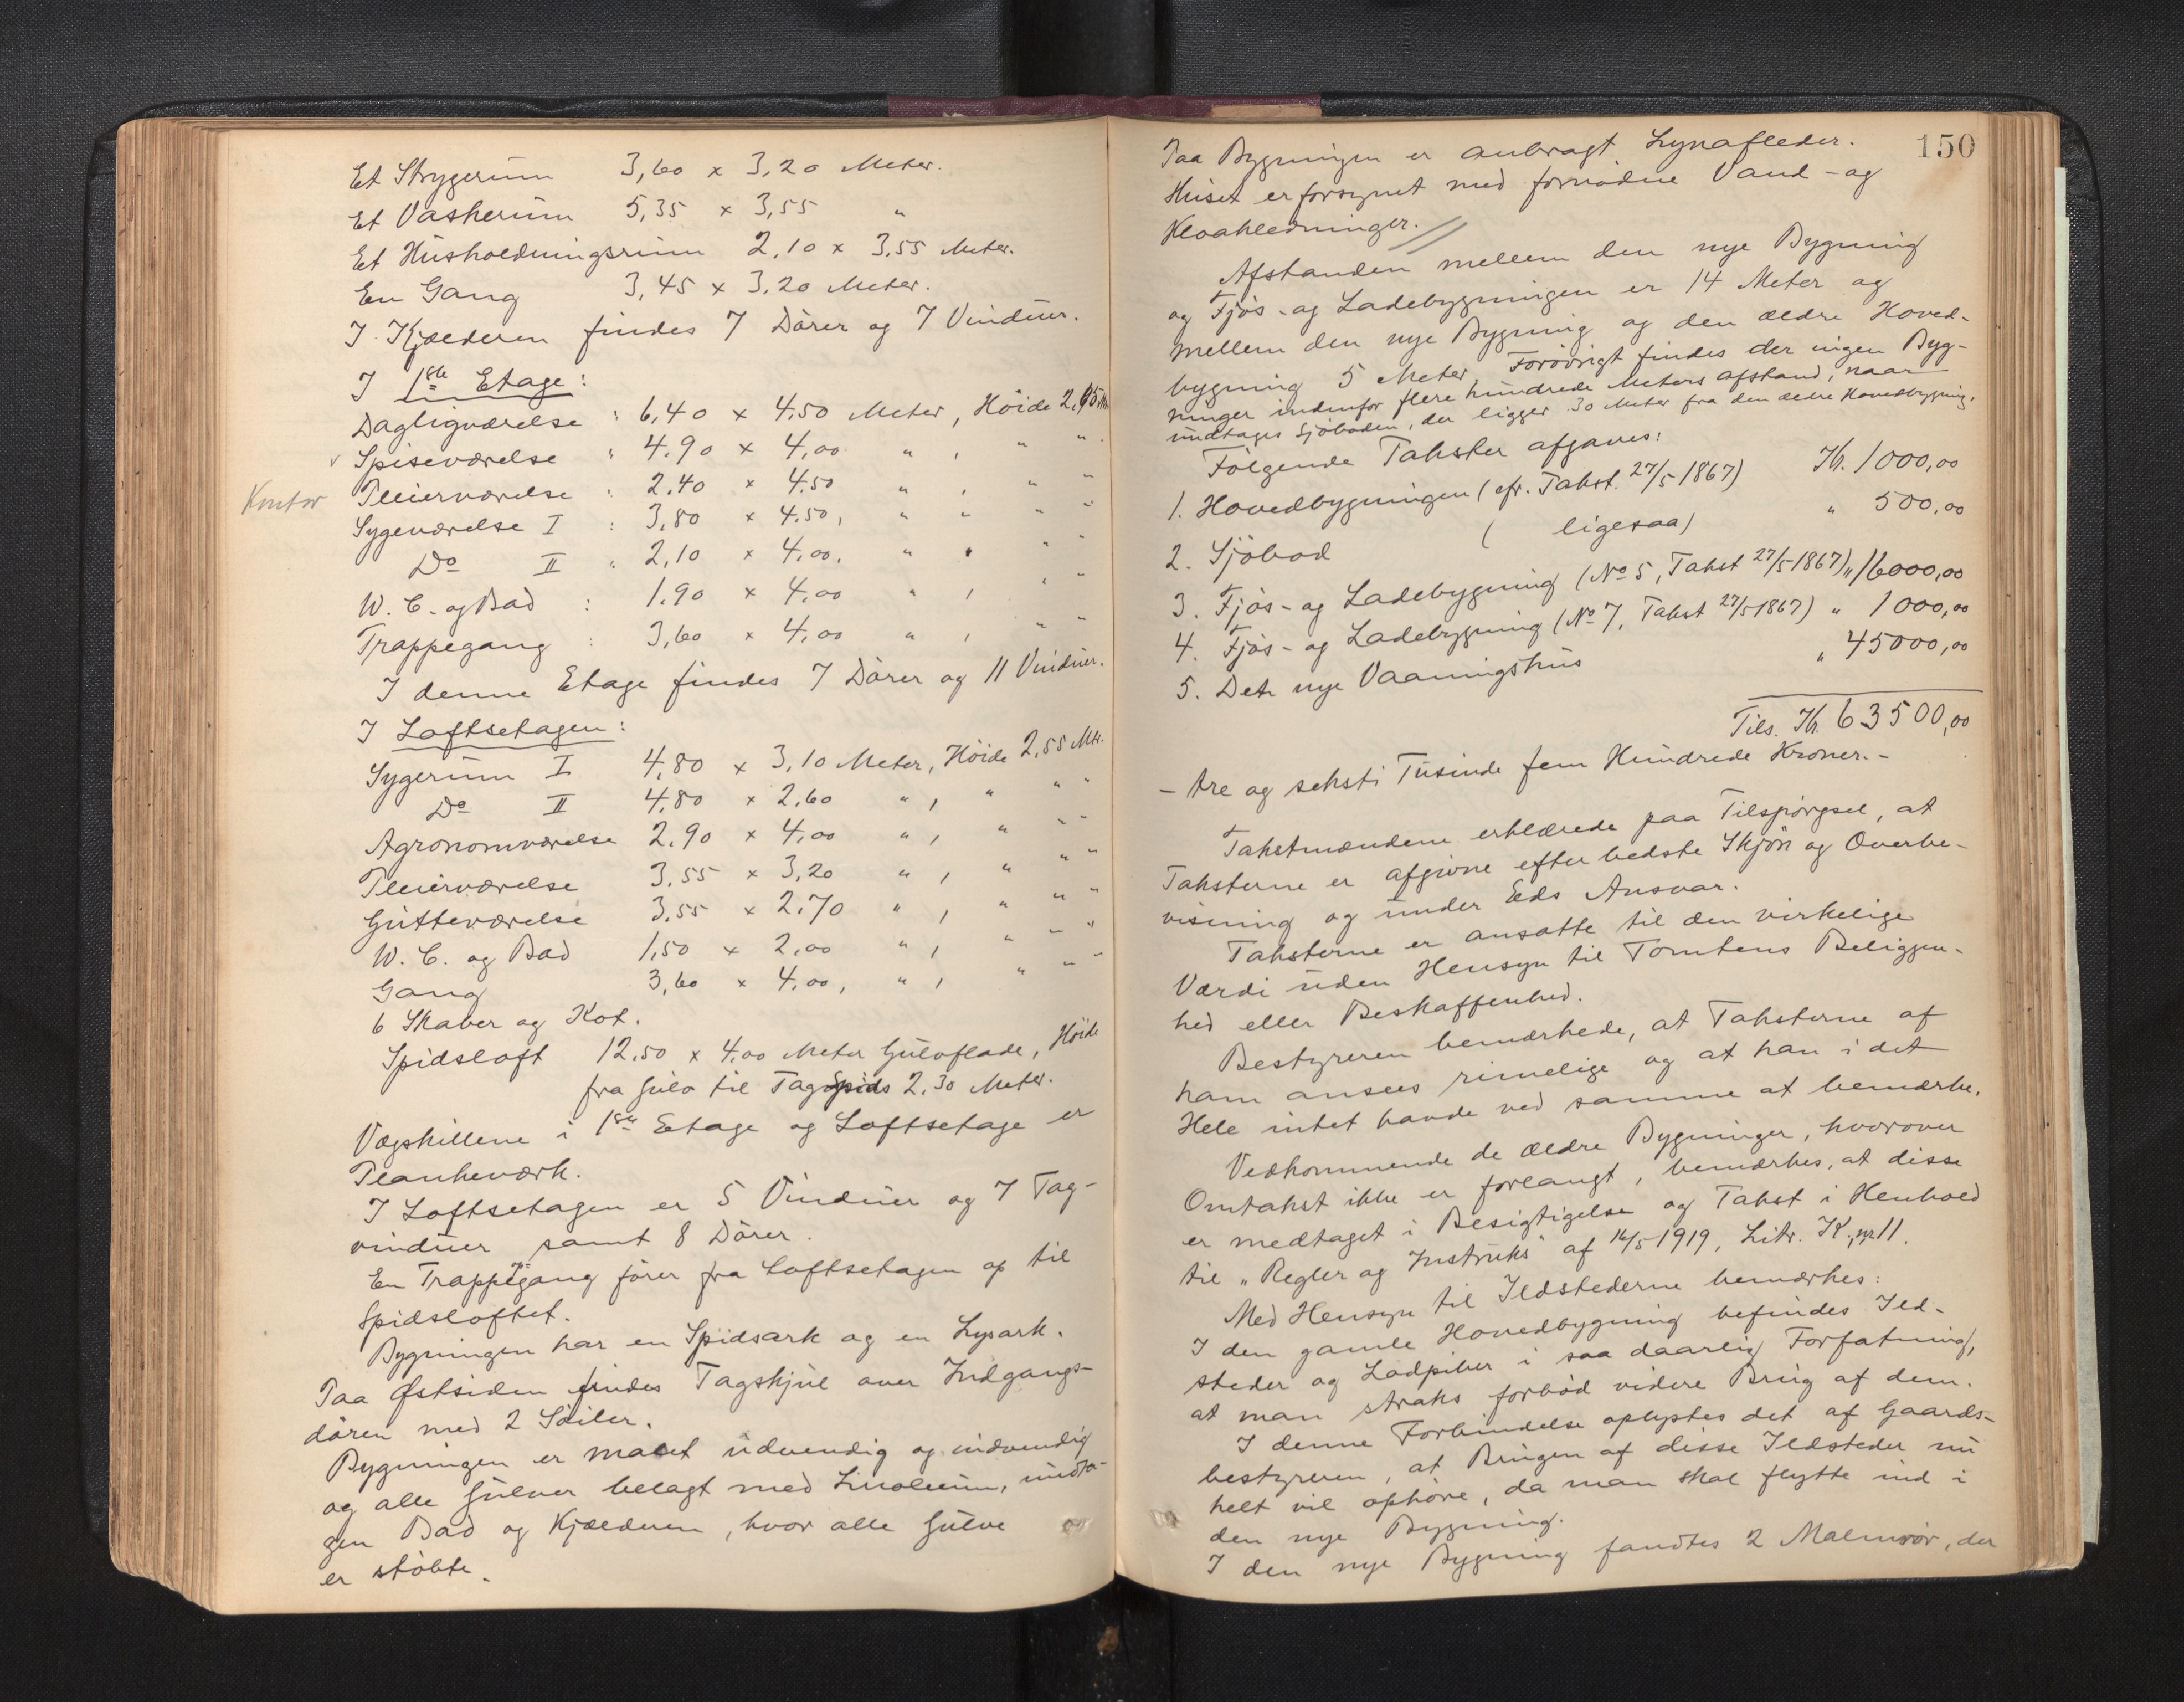 Et Strygerum 3,60 x 3,20 Meter.
Et Vaskerum 5,35 x 3,55 "
Et Husholdningsrum 2,10 x 3,55 Meter.
En Gang 3,45 x 3,20 Meter.
I Kjælderen findes 7 Dører og 7 Vinduer.
I 1ste Etage:
Dagligværelse : 6,40 x 4,50 Meter, Høide
v Spiseværelse " 4,90 x 4,00 " , " "
Kontor Pleierværelse : 2,40 x 4,50 " , " "
Sygeværelse I : 3,80 x 4,50, " " " "
Do II " 2,10 x 4,00. " " " "
W.C. og Bad : 1,90 x 4,00 " , " "
Trappegang : 3,60 x 4,00 " , " "
I denne Etage findes 7 Dører og 11 Vinduer.
I Loftsetagen:
Sygerum I 4,80 x 3,10 Meter, Høide 2,55 Mtr.
Do II 4,80 x 2,60 " , " " "
Agronomværelse 2,90 x 4,00 " , " " "
Pleierværelse 3,55 x 3,20 " , " " "
Gutteværelse 3,55 x 2,70 " , " " "
W.C. og Bad 1,50 x 2,00 " , " " "
Gang 3,60 x 4,00, " , " " "
6 Skaber og Kot.
Spidsloft 12,50 x 4,00 Meter Gulvflade, Høide
fra Gulv til Tagspids 2,30 Meter.
Vægskillene i 1ste Etage og Loftsetage er
Plankeværk.
I Loftsetagen er 5 Vinduer og 7 Tag-
vinduer samt 8 Dører.
En Trappegang fører fra Loftsetagen op til
Spidsloftet.
Bygningen har en Spidsark og en Lysark.
Paa Østsiden findes Tagskjul over Indgangs-
døren med 2 Søiler.
Bygningen er malet udvendig og indvendig
og alle Gulver belagt med Linoleum, undta-
gen Bad og Kjælderen, hvor alle Gulve
er støbte.
150
Paa Bygningen er anbragt Lynafleder.
Huset er forsynet med fornødne Vand- og
Kloakledninger.
Afstanden mellem den nye Bygning
og Fjøs- og Ladebygningen er 14 Meter og
mellem den nye Bygning og den ældre Hoved-
bygning 5 Meter. Forøvrigt findes der ingen Byg-
ninger indenfor flere hundrede Meters afstand, naar
undtages Sjøboden, der ligger 30 Meter fra den ældre Hovedbygning.
Følgende Takster afgaves:
1. Hovedbygningen (cfr. Takst. 27/5 1867) Kr. 1000,00
2. Sjøbod ( ligesaa) " 500,00
3. Fjøs- og Ladebygning (No 5, Takst 27/5 1867) " 16000,00
4. Fjøs- og Ladebygning (No 7, Takst 27/5 1867) " 1000,00
5. Det nye Vaaningshus " 45000,00
Tils. Kr. 63500,00
- tre og seksti Tusinde fem Hundrede Kroner. -
Takstmændene erklærede paa Tilspørgsel, at
Taksterne er afgivne efter bedste Skjøn og Overbe-
visning og under Eds Ansvar.
Taksterne er ansatte til den virkelige
Værdi uden Hensyn til Tomtens Beliggen-
hed eller Beskaffenhed.
Bestyreren bemærkede, at Taksterne af
ham ansees rimelige og at han i det
Hele intet havde ved samme at bemærke.
Vedkommende de ældre Bygninger, hvorover
Omtakst ikke er forlangt, bemærkes, at disse
er medtaget i Besigtigelse og Takst i Henhold
til "Regler og Instruks" af 16/5 1919, Litr. K, nr 11.
Med Hensyn til Ildstederne bemærkes:
I den gamle Hovedbygning befindes Ild-
steder og Ladpiber i saa daarlig Forfatning,
at man straks forbød videre Brug af dem.
I denne Forbindelse oplystes det af Gaards-
bestyreren, at Brugen af disse Ildsteder nu
helt vil ophøre, da man skal flytte ind i
den nye Bygning.
I den nye Bygning fandtes 2 Malmrør, der